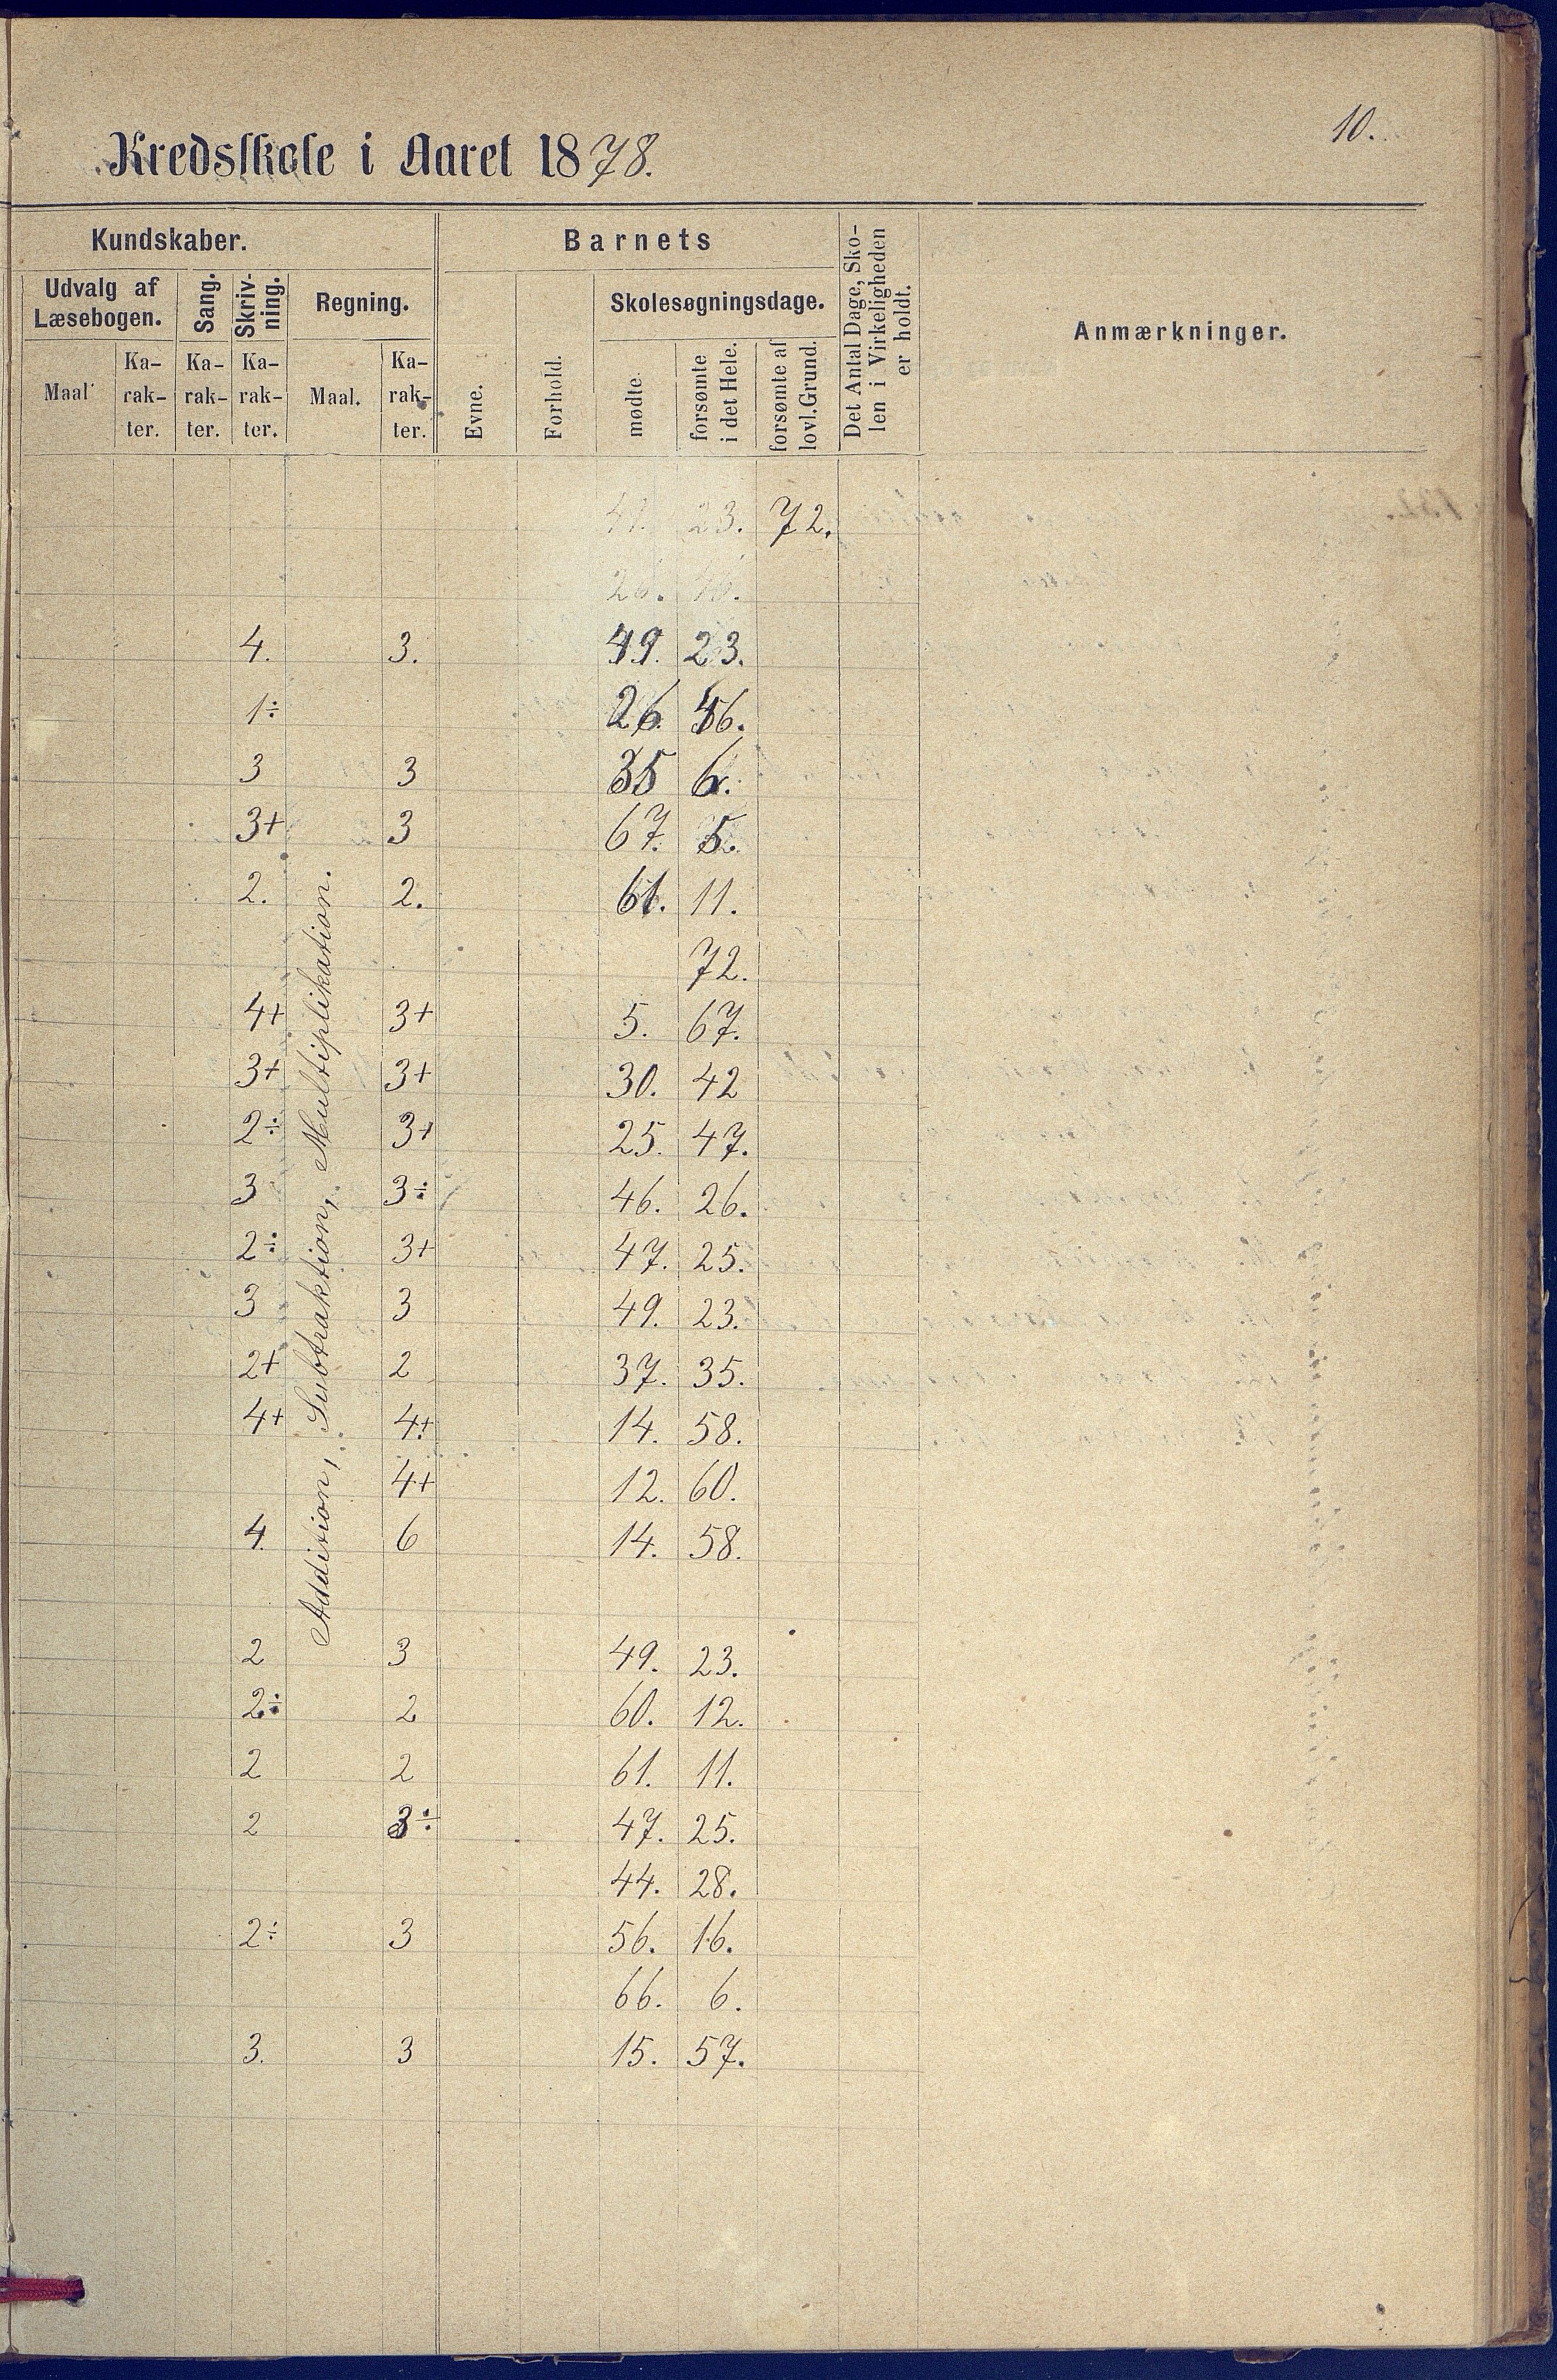 10.
Kredsskole i Aaret 1878.
Kundskaber.
Barnets
Det Antal Dage, Skolen i Virkeligheden er holdt.
Anmærkninger.
Udvalg af Læsebogen.
Sang.
Skrivning.
Regning.
Evne.
Forhold.
Skolesøgningsdage.
Maal
Karakter.
Karakter.
Karakter.
Maal.
Karakter.
mødte.
forsømte i det Hele.
forsømte af lovl. Grund.
Addition, Subtraktion, Multiplikation.
23. 72.
26.
4. 3. 49. 23.
1÷ 26. 46.
3 3 35 6.
3+ 3 67. 5.
2. 2. 61. 11.
72.
4+ 3+ 5. 67.
3+ 3+ 30. 42
2÷ 3+ 25. 47.
3 3÷ 46. 26.
2÷ 3+ 47. 25.
3 3 49. 23.
2+ 2 37. 35.
4+ 4+ 14. 58.
4+ 12. 60.
4. 6 14. 58.
2 3 49. 23.
2÷ 2 60. 12.
2 2 61. 11.
2 3÷ 47. 25.
44. 28.
2÷ 3 56. 16.
66. 6.
3. 3 15. 57.